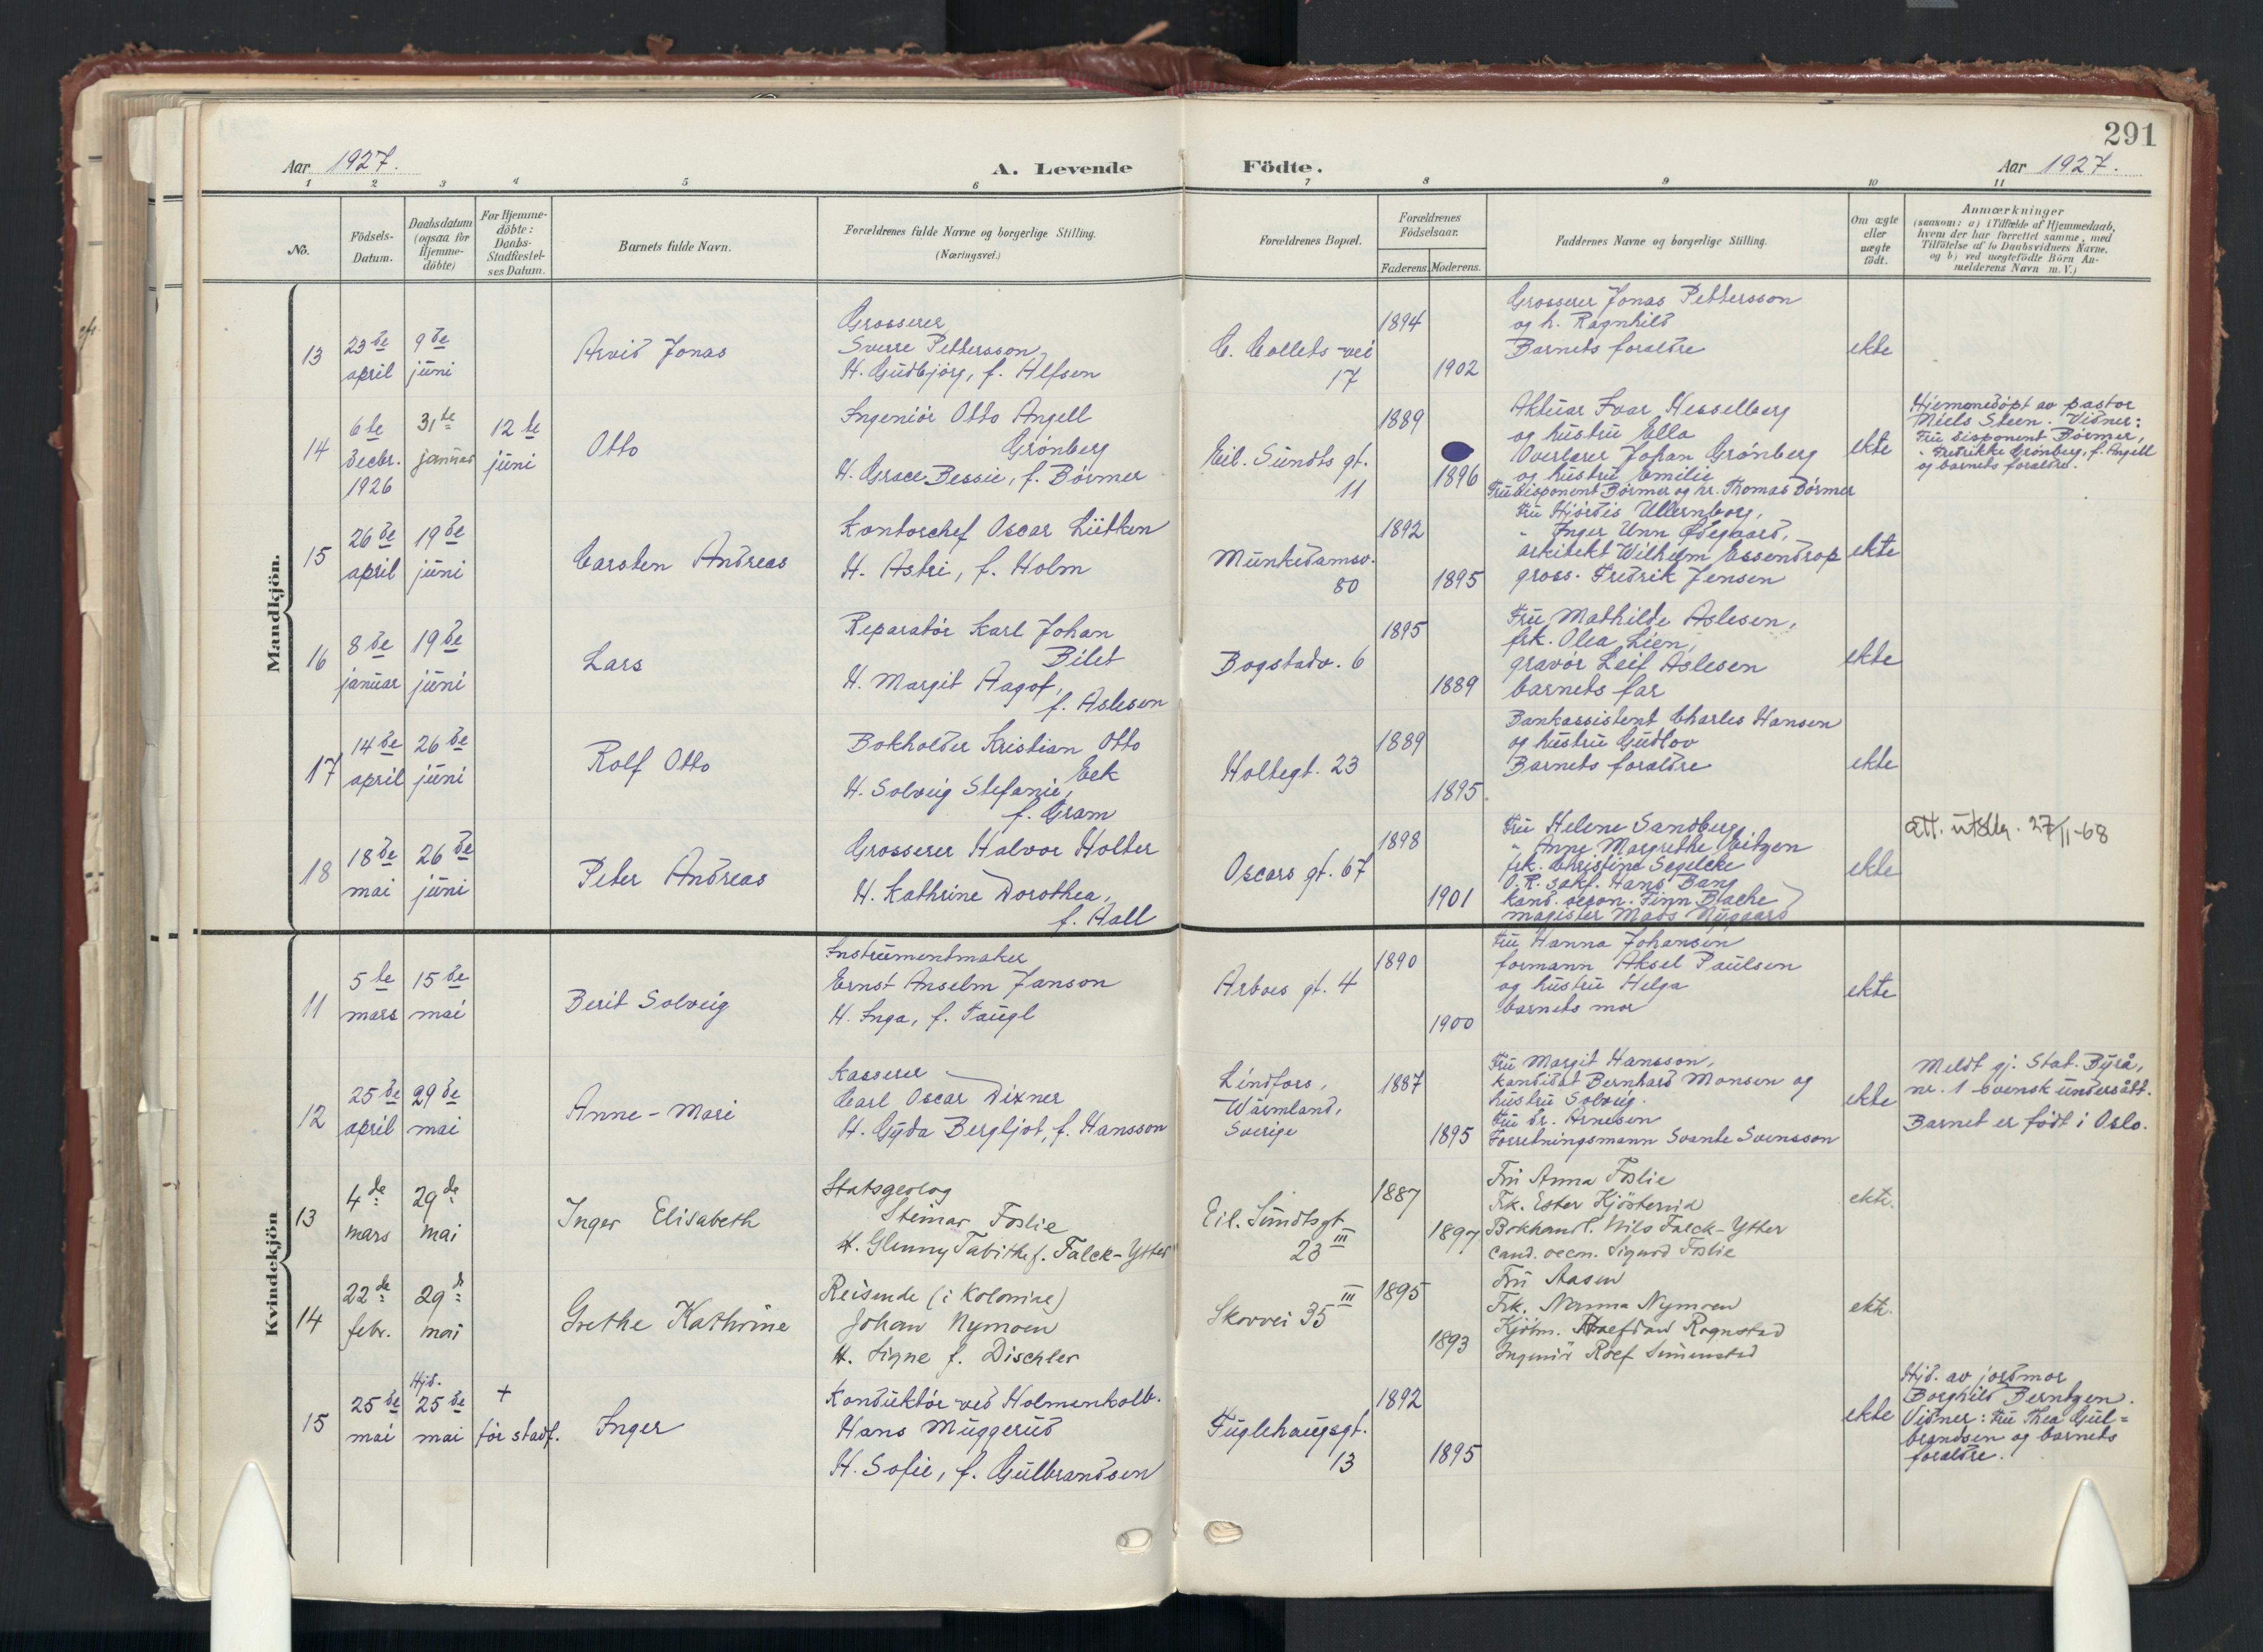 291
Aar 1927.
A. Levende Födte.
Aar 1927.
1 2 3 4 5 6 7 8 9 10 11
No.
Födsels-
Datum.
Daabsdatum
(ogsaa for
Hjemme-
döbte)
For Hjemme-
döbte:
Daabs-
Stadfæstel-
ses Datum.
Barnets fulde Navn.
Forældrenes fulde Navne og borgerlige Stilling.
(Næringsvei.)
Forældrenes Bopæl.
Forældrenes
Födselsaar.
Faderens. Moderens.
Faddernes Navne og borgerlige Stilling.
Om ægte
eller
uægte
födt.
Anmærkninger
(saasom: a) i Tilfælde af Hjemmedaab,
hvem der har forrettet samme, med
Tilföielse af to Daabsvidners Navne,
og b) ved uægtefödte Börn An-
melderens Navn m. V.)
Mandkjön.
13
23de
april
9de
juni
Arvid Jonas
Grosserer
Sverre Pettersson
H. Gudbjörg, f. Alfsen
C. Collets vei
17
1894
1902
Grosserer Jonas Pettersson
og h. Ragnhild
Barnets foraldre
ekte
14
6te
decbr.
1926
31te
januar
12te
juni
Otto
Ingeniör Otto Angell
Grönberg
H. Grace Bessie, f. Börmer
Eil. Sundts gt.
11
1889
1896
Aktuar Ivar Hesselberg
og hustru Ella
Overlærer Johan Grönberg
og hustru Emilie
Fru disponent Börmer og hr. Thomas Börmer
ekte
Hjemmedöpt av pastor
Niels Steen. Vidner:
Fru disponent Börmer,
" Fredrikke Grönberg, f. Angell
og barnets foraldre.
15
26de
april
19de
juni
Carsten Andreas
Kontorchef Oscar Lütken
H. Astri, f. Holm
Munkedamsv.
80
1892
1895
Fru Hjördis Ullernborg,
" Inger Unn Ödegaard,
arkitekt Wilhelm Essendrop
gross. Fredrik Jensen
ekte
16
8de
januar
19de
juni
Lars
Reparatör Karl Johan
Bilet
H. Margit Aagot,
f. Aslesen
Bogstadv. 6
1895
1889
Fru Mathilde Aslesen,
frk. Olea Lien,
gravör Leif Aslesen
barnets far
ekte
17
14de
april
26de
juni
Rolf Otto
Bokholder Kristian Otto
Eek
H. Solveig Stefanie,
f. Gram
Holtegt. 23
1889
1895.
Bankassistent Charles Hansen
og hustru Gudlov
Barnets foraldre
ekte
18
18de
mai
26de
juni
Peter Andreas
Grosserer Halvor Holter
H. Kathrine Dorothea,
f. Aall
Oscars gt. 67
1898
1901
Fru Helene Sandberg
" Anne Margrethe Eitzen
frk. Christine Segelcke
O.R. sakf. Hans Bang
kand. oecon. Finn Blache
magister Mads Nygaard
ekte
att. utst. 27/11-68
Kvindekjön
11
5te
mars
15de
mai
Berit Solveig
Instrumentmaker
Ernst Anselm Janson
H. Inga, f. Taugl
Arbos gt. 4
1890
1900
Fru Hanna Johansen
formann Aksel Paulsen
og hustru Helga
barnets mor
ekte
12
25de
april
29de
mai
Anne-Mari
Kasserer
Carl Oscar Dixner
H. Gyda Bergljot, f. Hansson
Lindfors,
Wärmland,
Sverige
1887
1895
Fru Margit Hansson,
kandidat Bernhard Monsen og
hustru Solveig.
Fru dr. Arnesen
Forretningsmann Svante Svensson
ekte
Meldt gj. Stat. Byrå,
nr. 1 svensk undersått.
Barnet er födt i Oslo.
13
4de
mars
29de
mai
Inger Elisabeth
Statsgeolog
Steinar Foslie
H. Glenny Tabithe f. Falck-Ytter
Eil. Sundtsgt
23 III
1887
1897
Fru Anna Foslie
Frk. Ester Kjöstervid
Bokhandl. Nils Falck-Ytter
Cand. oecn. Sigurd Foslie
ekte.
14
22de
febr.
29de
mai
Grethe Kathrine
Reisende (i Kolonine)
Johan Nymoen
H. Signe f. Dischler
Skovvei 35 III
1895
1893
Fru Aasen
Frk. Nanna Nymoen
Kjöbm. Rognstad
Ingeniör Rolf Simenstad
ekte.
15
25de
mai
Hjd.
25de
mai
+
för stadf.
Inger
Konduktör ved Holmenkolb.
Hans Muggerud
H. Sofie, f. Gulbrandsen
Fuglehaugsgt.
13
1892
1895
ekte
Hjd. av jordmor
Borghild Berntzen.
Vidner: Fru Thea Gul=
brandsen og barnets
foraldre.